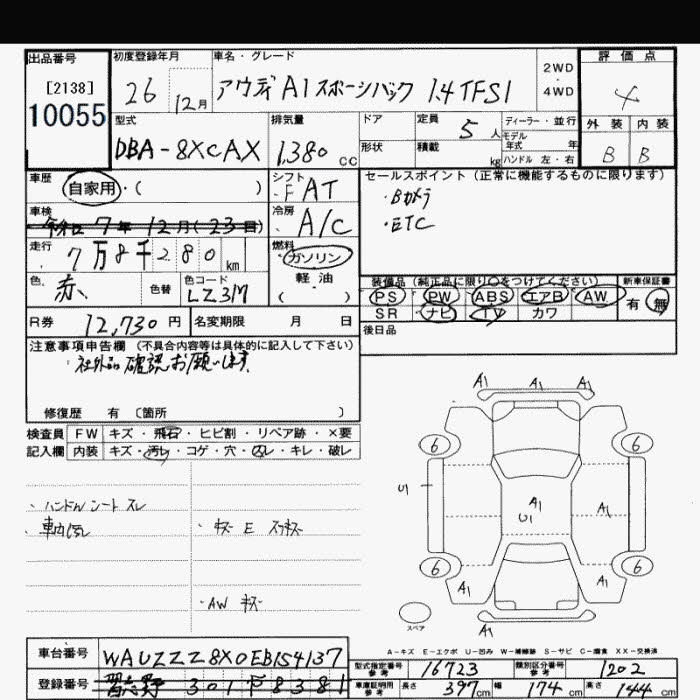 出品番号
[2138]
10055
初度登録年月
26 12月
車名・グレード
アウディ A1 スポーツバック 1.4TFSI
2WD
4WD
評価点
4
外装 内装
B B
型式
DBA-8XCAX
排気量
1,380 CC
ドア
形状
定員
5人
積載
kg
ディーラー・並行
モデル年式 年
ハンドル 左・右
車歴
自家用・( )
シフト
F AT
セールスポイント(正常に機能するものに限ります)
・Bカメラ
・ETC
車検
令和 7年 12月(23日)
冷房
A/C
走行
7万8千280km
燃料
ガソリン
軽油
( )
色
赤
色替
色コード
LZ3M
装備品(純正品に限り○をつけてください)
PS PW ABS エアB AW
SR ナビ TV カワ
新車保証書
有 無
R券 12,730円
名変期限 月 日
後日品
注意事項申告欄(不具合内容等は具体的に記入して下さい)
・社外品確認お願いします
修復歴 有 〔箇所 〕
検査員 FW キズ・飛石・ヒビ割・リペア跡・×要
記入欄 内装 キズ・汚レ・コゲ・穴・凹レ・キレ・破レ
、ハンドル シート スレ
・車内汚レ
・キズ E スリキズ
・AW キズ
A1 A1 A1
6 6
U1
A1
U1
A1
6 6
A1 A1
A1
スペア
A-キズ E-エクボ U-凹み W-補修跡 S-サビ C-腐食 XX-交換済
車台番号 WAUZZZ8X0EB154137
登録番号 習志野 301 8381
型式指定番号
参考
16723
類別区分番号
参考
1202
車庫証明用
参考
長さ 397cm 幅 174cm 高さ 144cm